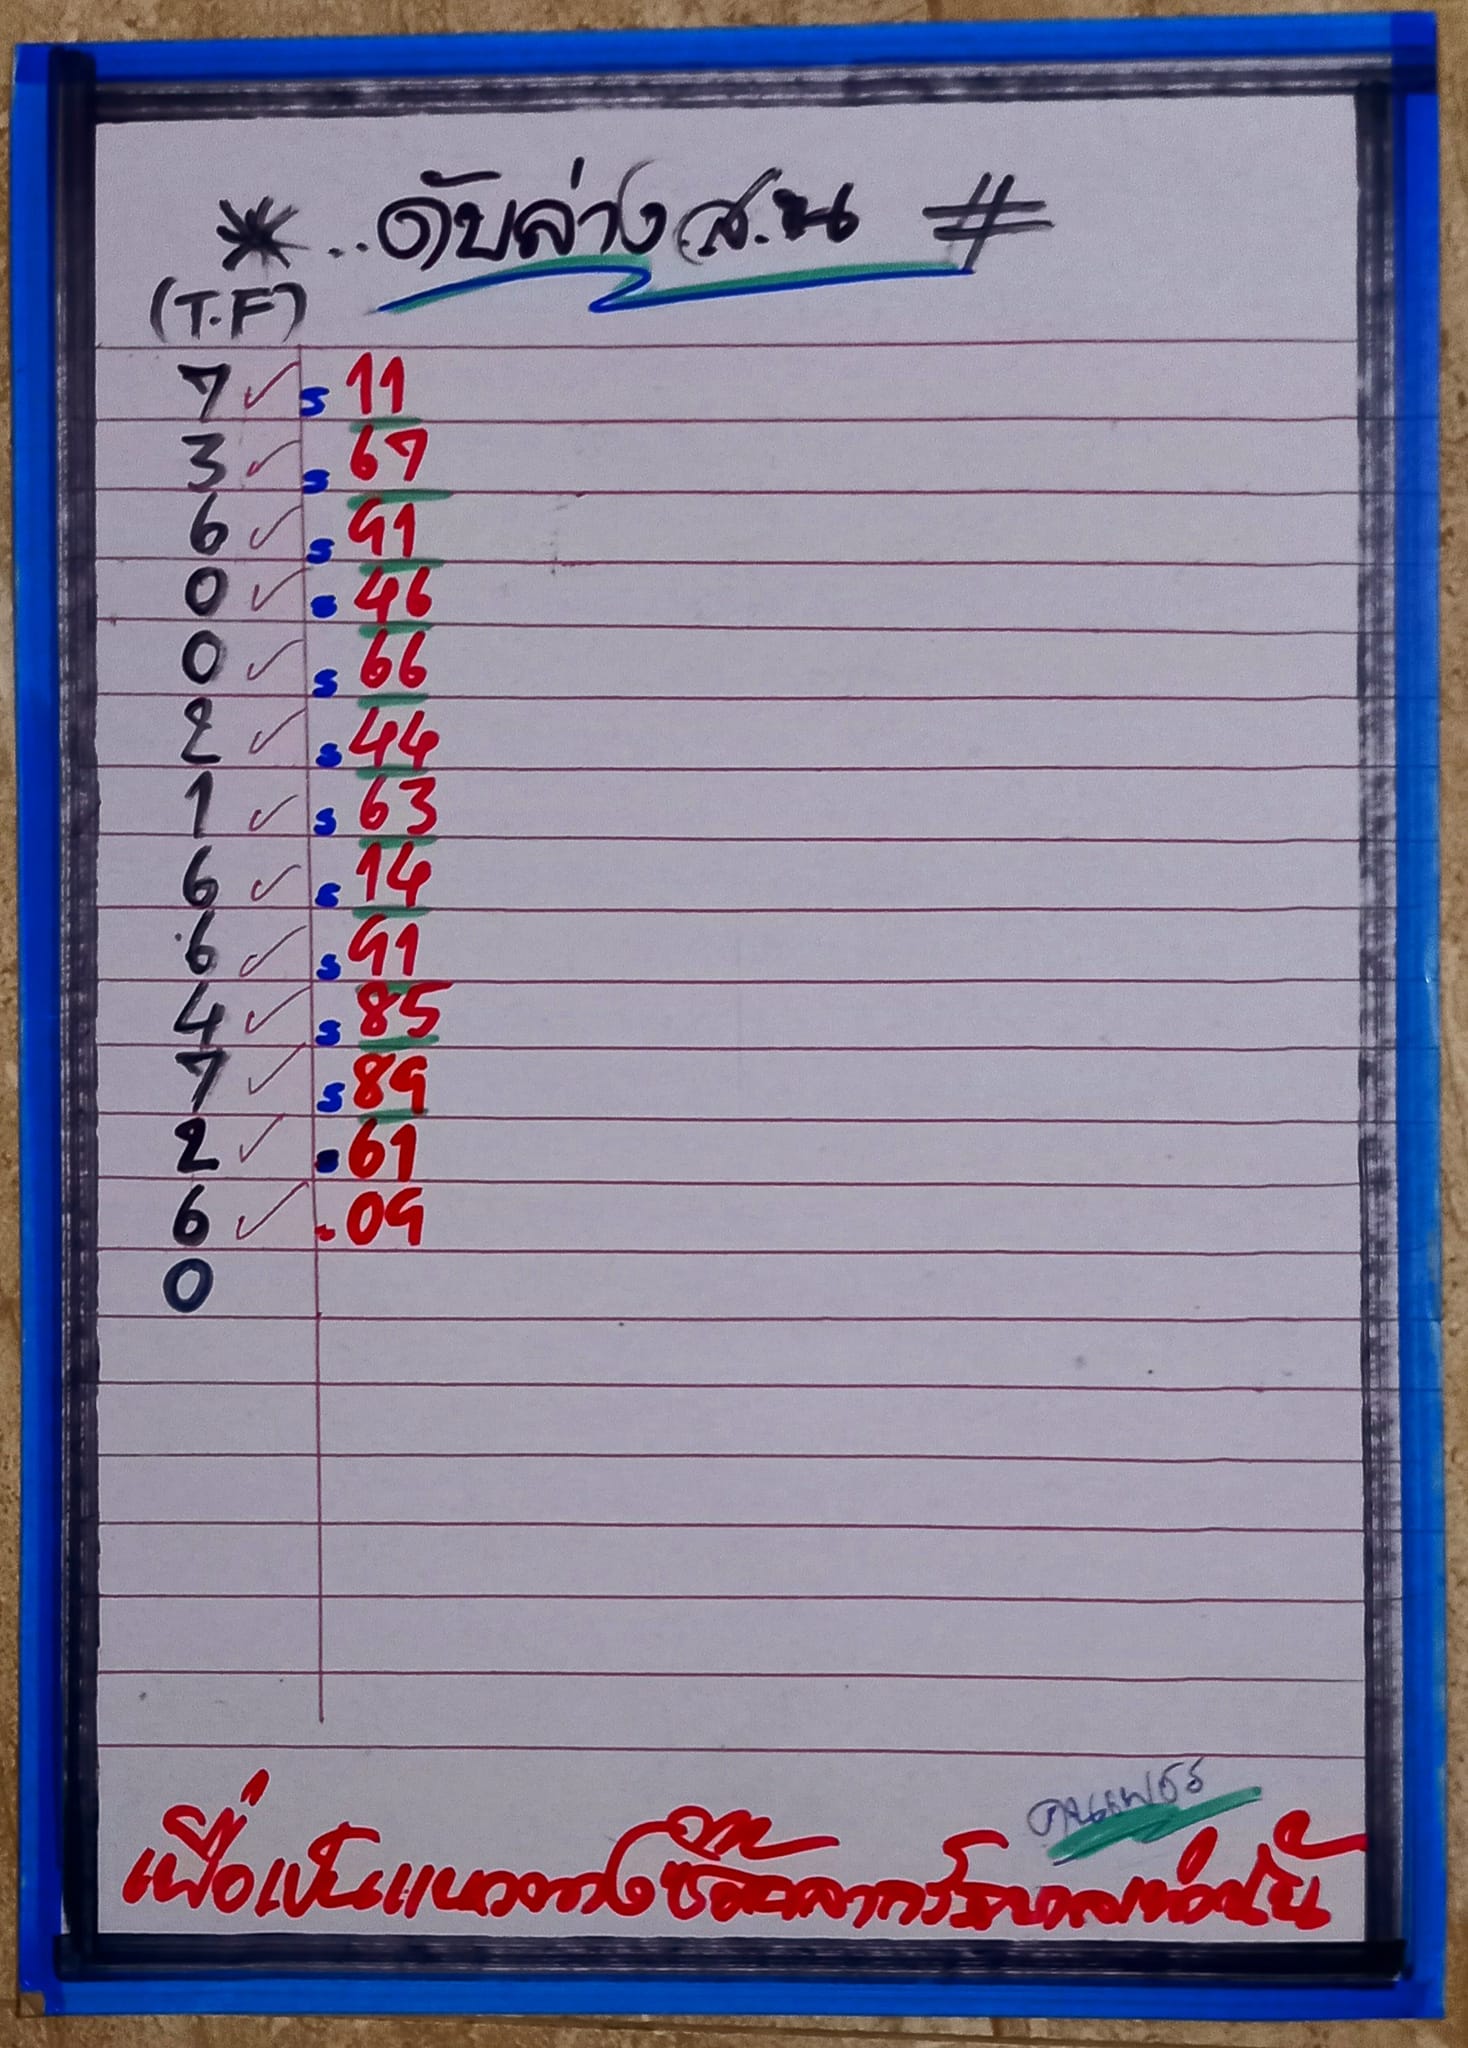 * ..ดับล่าง ส.น #
(T.F)
7 ✓ s 11
3 ✓ s 67
6 ✓ s 91
0 ✓ s 46
0 ✓ s 66
2 ✓ s 44
1 ✓ s 63
6 ✓ s 14
6 ✓ s 91
4 ✓ s 85
7 ✓ s 89
2 ✓ 61
6 ✓ 09
0
เพื่อเป็นแนวทางซื้อสลากกินรัฐบาลเท่านั้น